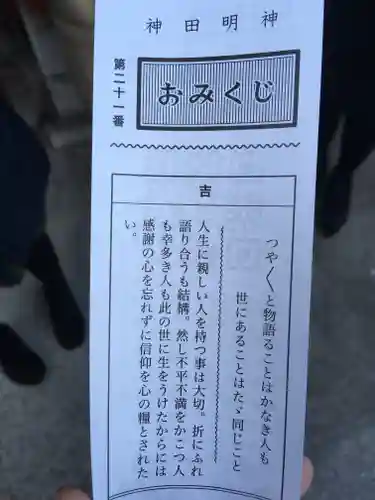 神田明神
第二十一番
おみくじ
吉
つや〱と物語ることはかなき人も
世にあることはたゞ同じこと
人生に親しい人を持つ事は大切。折にふれ
語り合うも結構。然し不平不満をかこつ人
も幸多き人も此の世に生をうけたからには
感謝の心を忘れずに信仰を心の糧とされた
い。